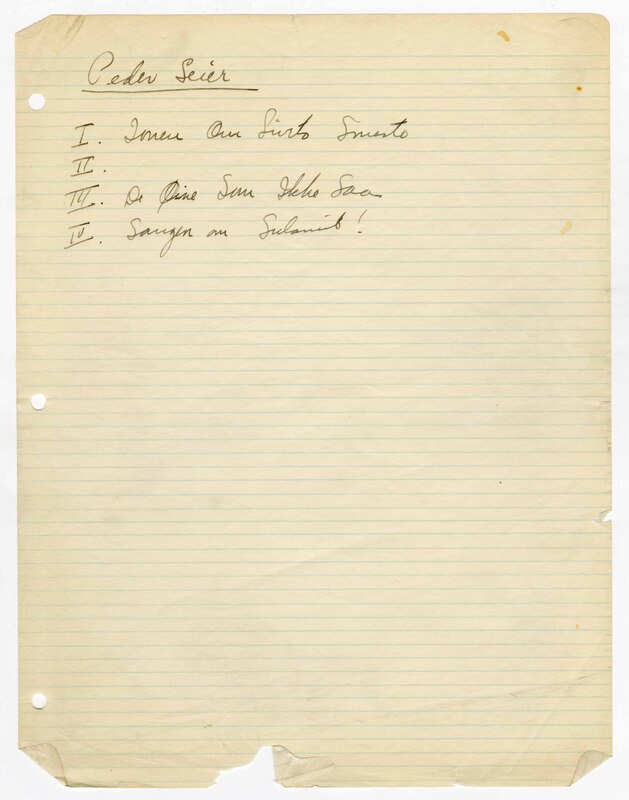 Peder Seier
I. Tonen Om Livets
II.
III. De Øine Som Ikke Saa
IV. Sangen om Sulamit!